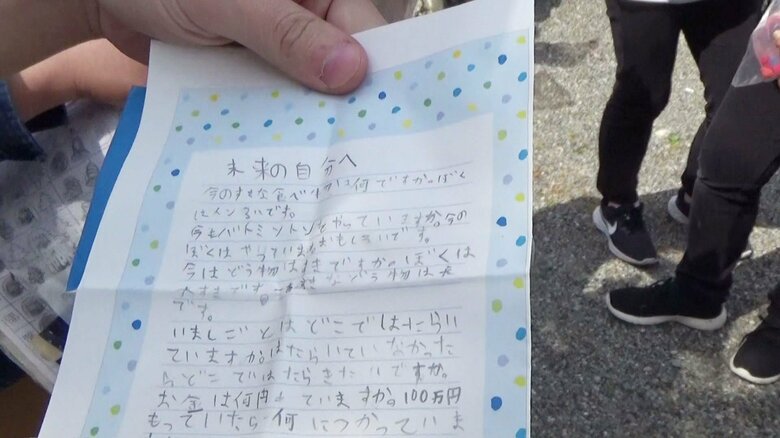 未来の自分へ
今のすきな食べものは何ですか。ぼく
はメンるいです。
今もバドミントンをやっていますか。今の
ぼくはやっていますおもしろいです。
今はどう物はすきですか。ぼくは
大すきです
です。
いましごとはどこではたらい
ていますか。はたらいていなかった
らどこではたらきたいですか。
お金は何円もっていますか。100万円
もっていたら何につかっていま